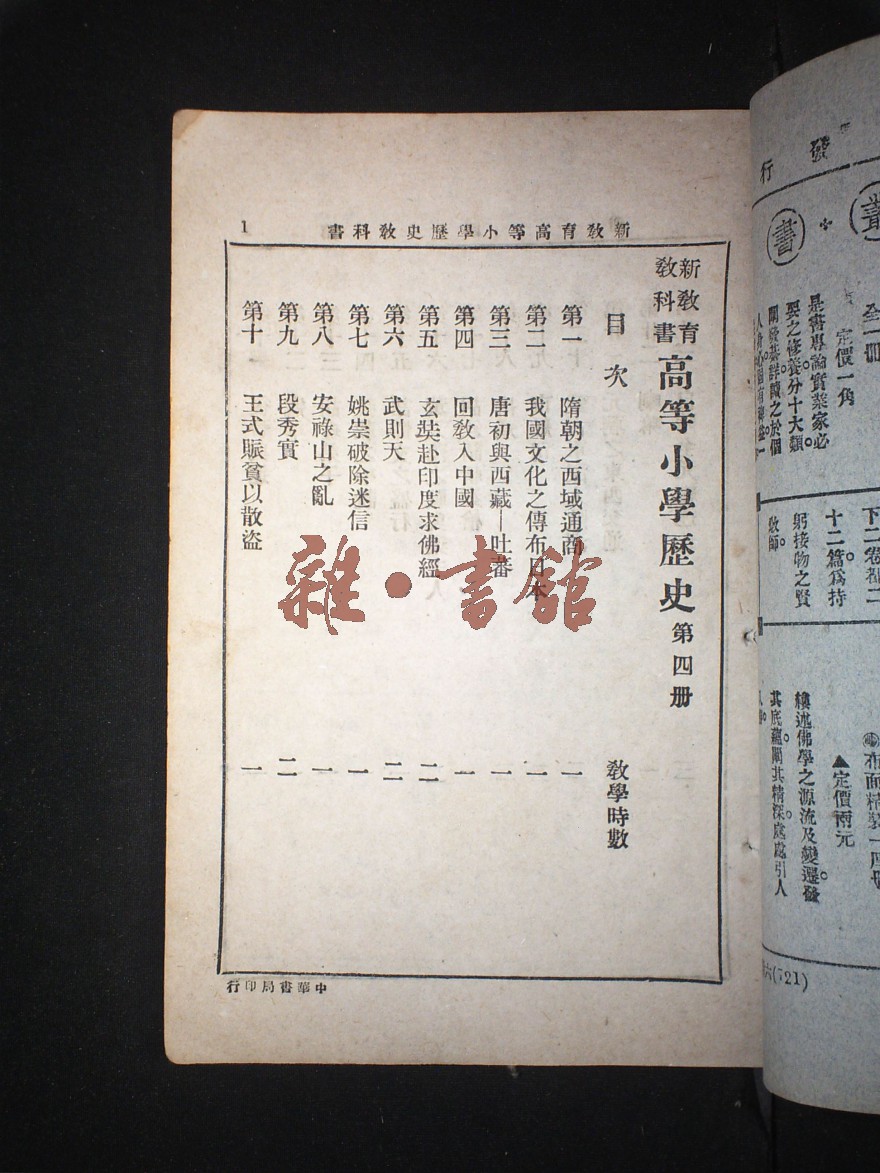 新教育高等小學歷史教科書
1
新教育
教科書
高等小學歷史 第四册
目次 教學時數
第一 隋朝之西域通商 一
第二 我國文化之傳布日本 一
第三 唐初與西藏—吐蕃 一
第四 回教入中國 一
第五 玄奘赴印度求佛經 二
第六 武則天 二
第七 姚崇破除迷信 一
第八 安祿山之亂 一
第九 段秀實 二
第十 王式賑貧以散盜 一
中華書局印行
雜·書館
發行
叢書
全一冊
定價一角
是書專論實業家必
要之修養分十大類
十二篇爲持
躬接物之賢
教師。
布面精裝一厚册
▲定價兩元
縷述佛學之源流及變遷。發
其底蘊。闡其精深。處處引人
(721)